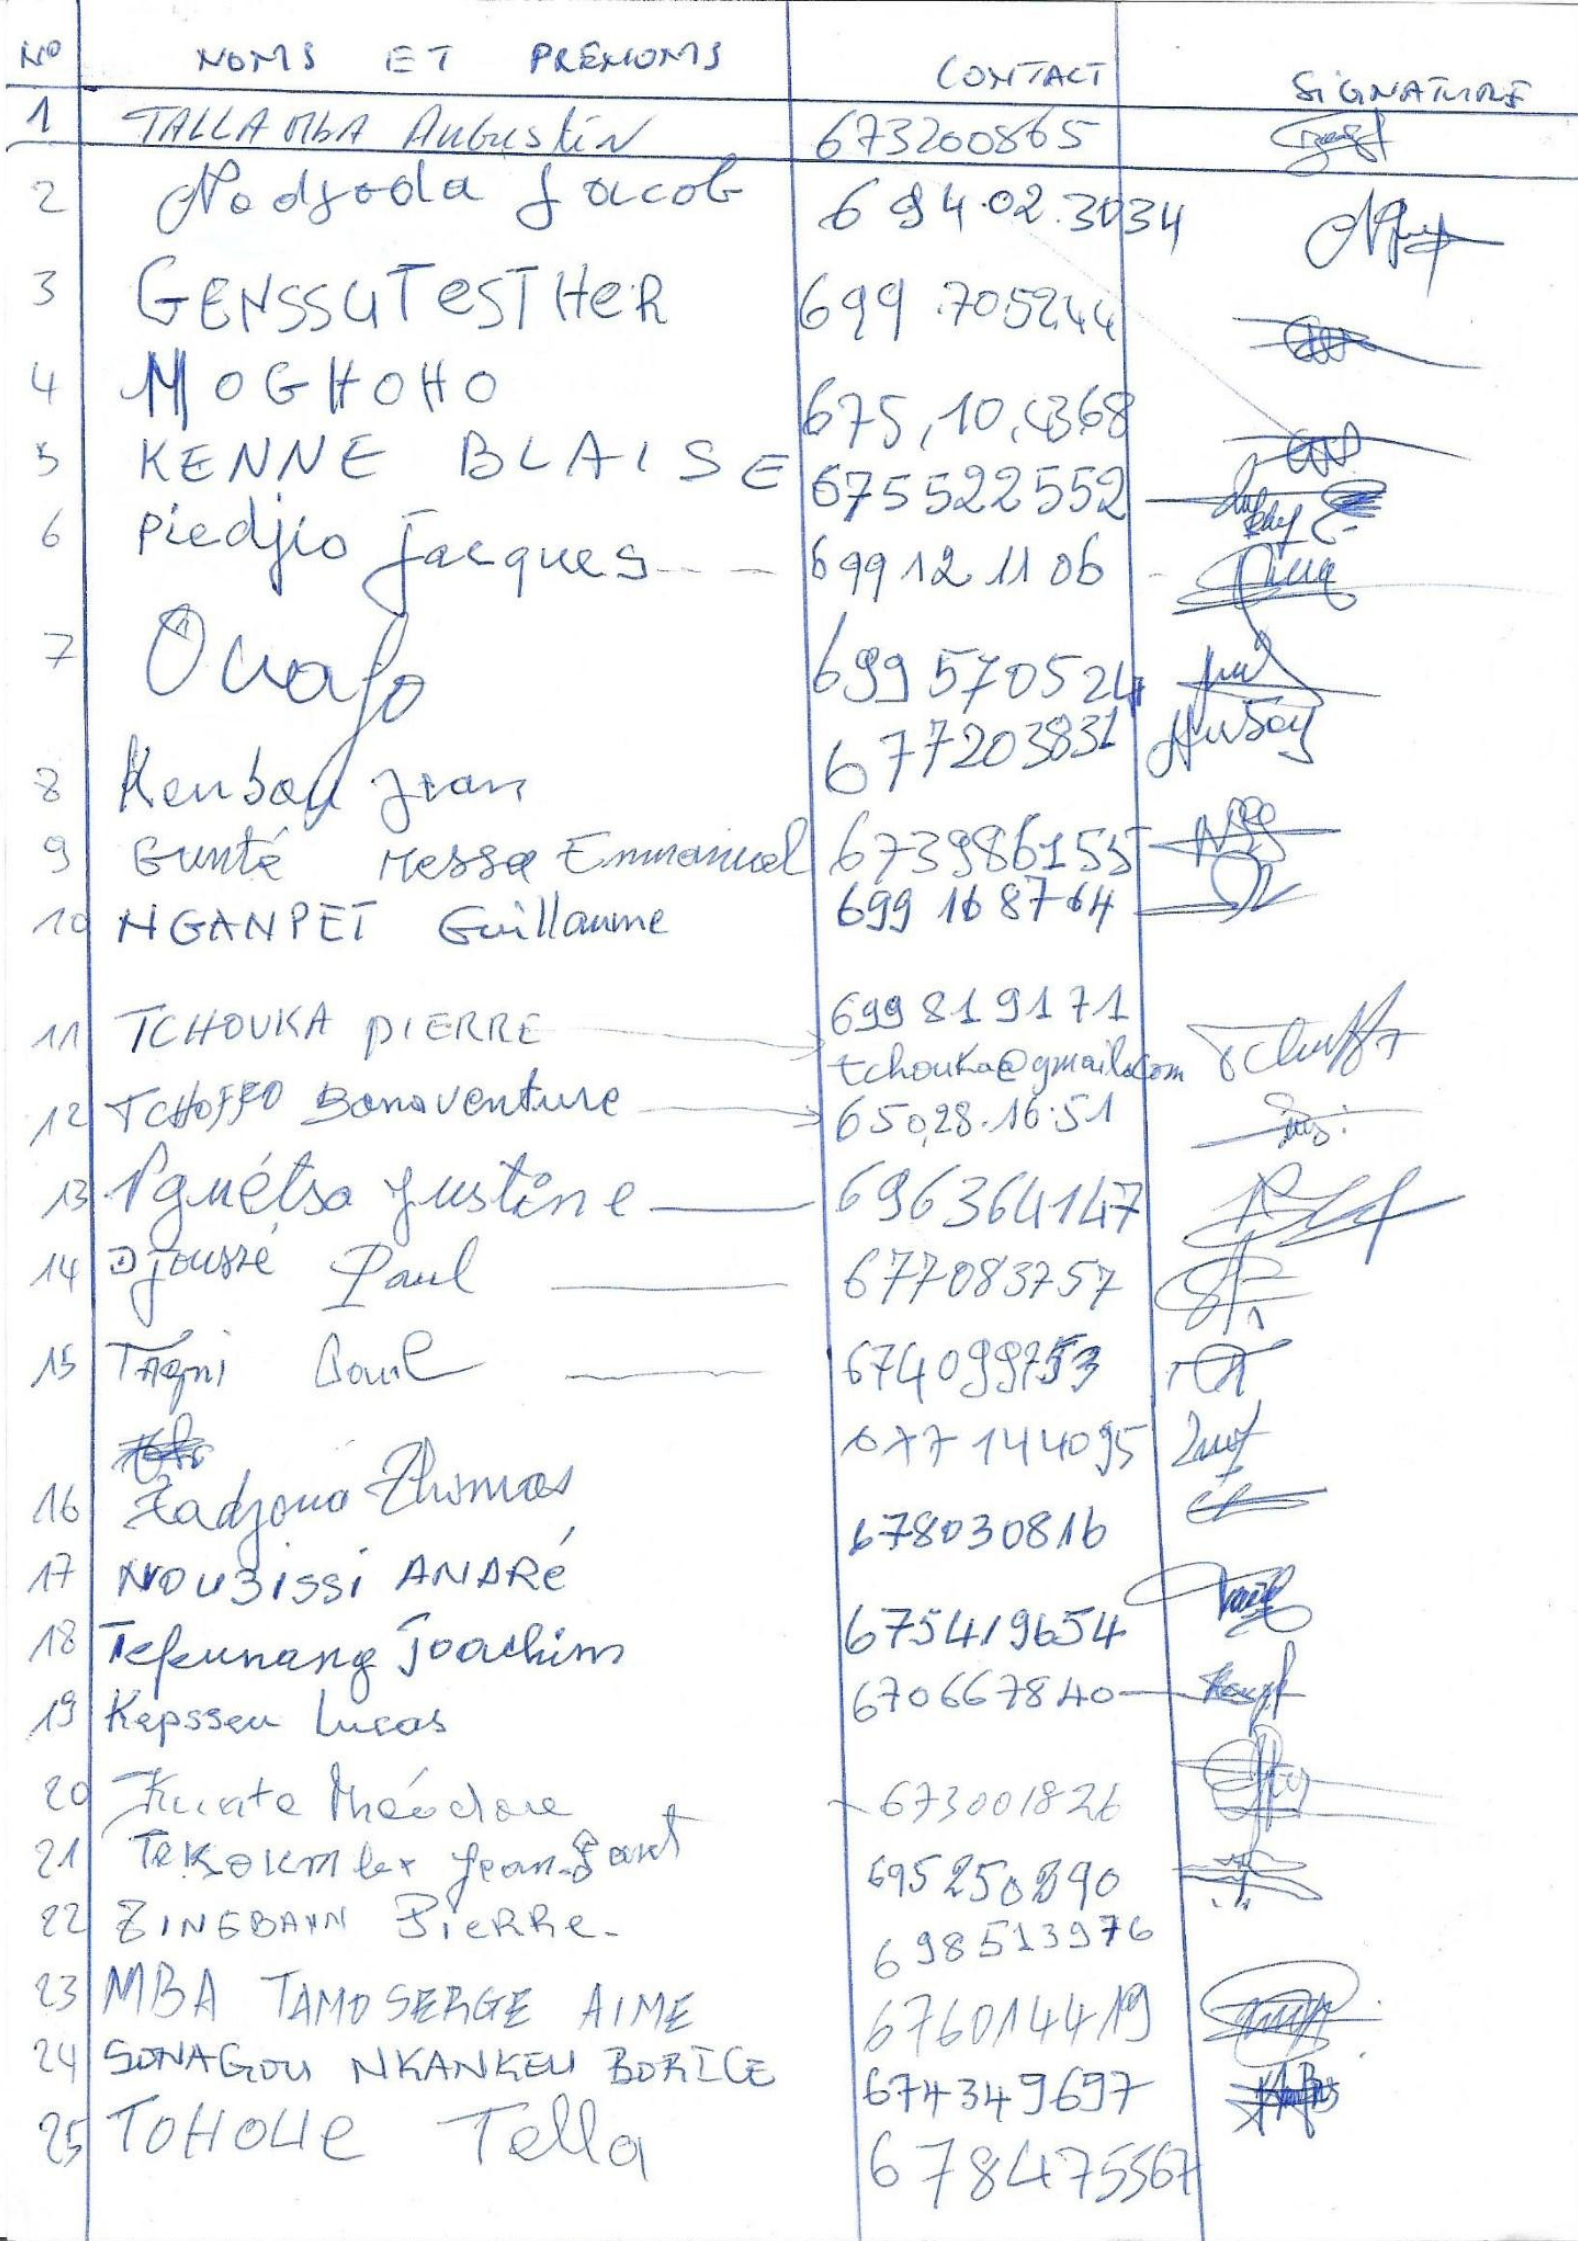 N° NOMS ET PRENOMS CONTACT SIGNATURE
1 TALLA MBA Augustin 673200865
2 Nodjoda Jacob 694.02.3034
3 GENSSUT ESTHER 699 705244
4 MOGHOHO 675,10,4368
5 KENNE BLAISE 675522552
6 Piedjio Jacques 699 12 11 06
7 Ouafo 699570524
8 Kenbou Jean 677203831
9 Gunté Messa Emmanuel 673986155
10 NGANPET Guillaume 699 168764
11 TCHOUKA PIERRE 699819171
tchouka@gmail.com
12 TCHOFFO Bonaventure 650.28.16.51
13 Nguétsa Justine 696364147
14 Djoussé Paul 677083757
15 Tagni Paul 674099753
677144095
16 Zadjouo Thomas
678030816
17 NOUBISSI ANDRé
18 Tefeunang Joachim 675419654
19 Kepsseu Lucas 670667840
20 Kuate Théodore 673001826
21 695250390
22 ZINGBAHN PierRe. 698513976
23 MBA TAMO SERGE AIME 676014419
24 SONAGOU NKANKEU BORICE 674349697
25 TOHOUe Tella 678475567